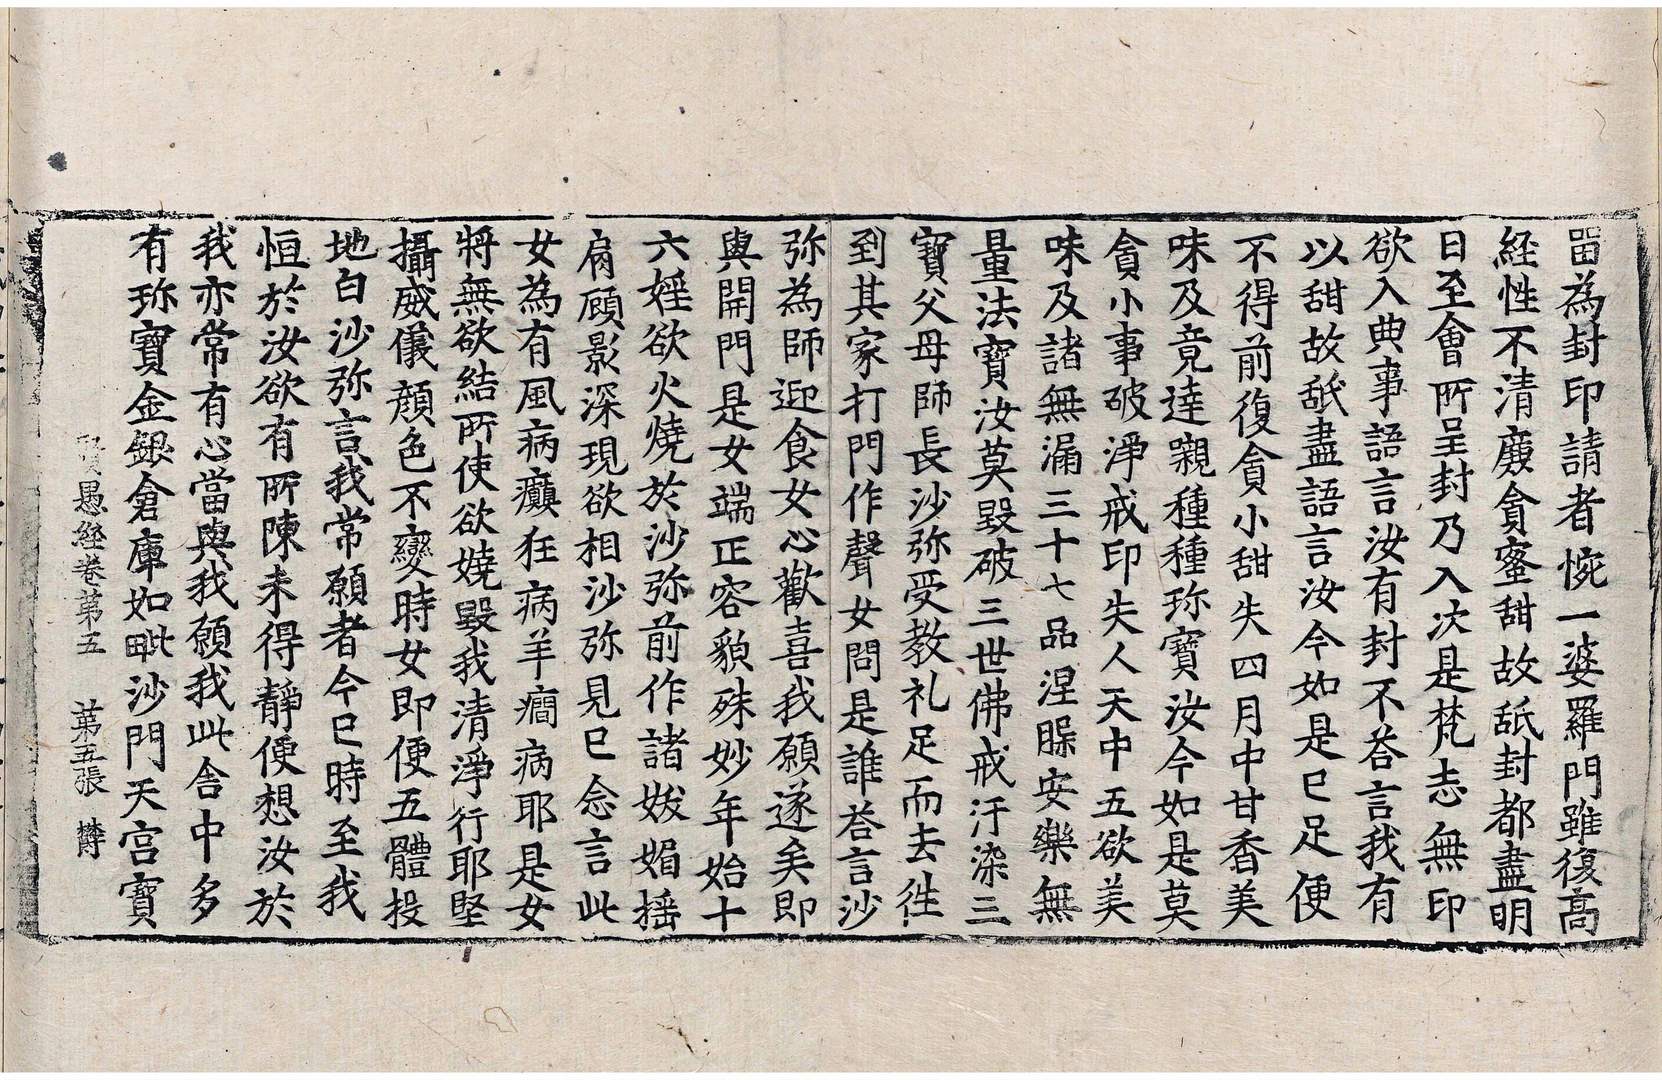 留為封印請者慌一婆羅門雖復高
経性不清廉貪蜜甜故舐封都盡明
日至會所呈封乃入次是梵志無印
欲入典事語言汝有封不荅言我有
以甜故舐盡語言汝今如是已足便
不得前復貪小甜失四月中甘香美
味及竟達嚫種種珎寶汝今如是莫
貪小事破淨戒印失人天中五欲美
味及諸無漏三十七品涅槃安樂無
量法寶汝莫毀破三世佛戒汙染三
寶父母師長沙弥受教礼足而去徃
到其家打門作聲女問是誰荅言沙
弥為師迎食女心歡喜我願遂矣即
與開門是女端正容貌殊妙年始十
六婬欲火燒於沙弥前作諸妖媚揺
肩顧影深現欲相沙弥見已念言此
女為有風病癲狂病羊癎病耶是女
將無欲結所使欲嬈毀我清淨行耶堅
攝威儀顔色不變時女即便五體投
地白沙弥言我常願者今已時至我
恒於汝欲有所陳未得靜便想汝於
我亦常有心當與我願我此舍中多
有珎寶金銀倉庫如毗沙門天宮寶
賢愚経卷第五　第五張